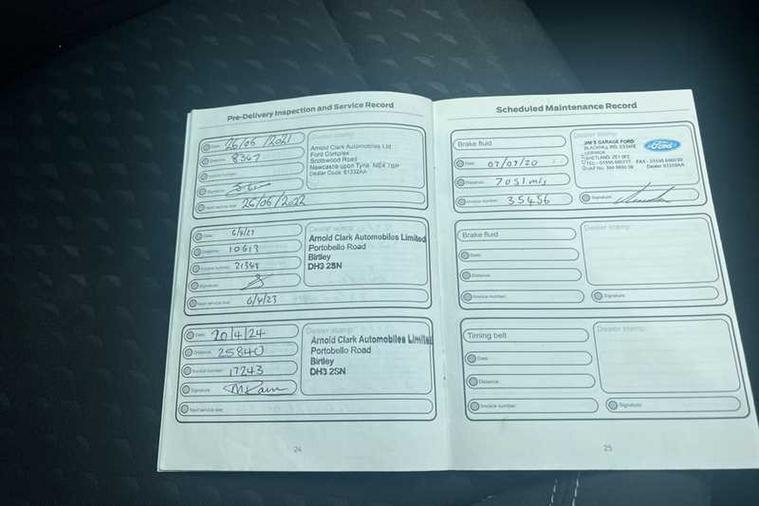 Pre-Delivery Inspection and Service Record
Date 26/05/2021
8347
Arnold Clark Automobiles Ltd
Ford Complex
Scotswood Road
Newcastle upon Tyne NE4 7BP
Dealer Code
Next service due 26/05/2022
Date
10613
Invoice number
Signature
Next service due 6/4/23
Dealer stamp
Arnold Clark Automobiles Limited
Portobello Road
Birtley
DH3 2SN
Date 20/4/24
Distance 25840
Invoice number 17243
Signature
Next service due
Dealer stamp
Arnold Clark Automobiles Limited
Portobello Road
Birtley
DH3 2SN
24
Scheduled Maintenance Record
Brake fluid
Date 07/07/20
Distance 7051 mls
Invoice number 35456
Dealer stamp
JIM'S GARAGE FORD
LERWICK
SHETLAND
Ford
Signature
Brake fluid
Date
Distance
Invoice number
Dealer stamp
Signature
Timing belt
Date
Distance
Invoice number
Dealer stamp
Signature
25